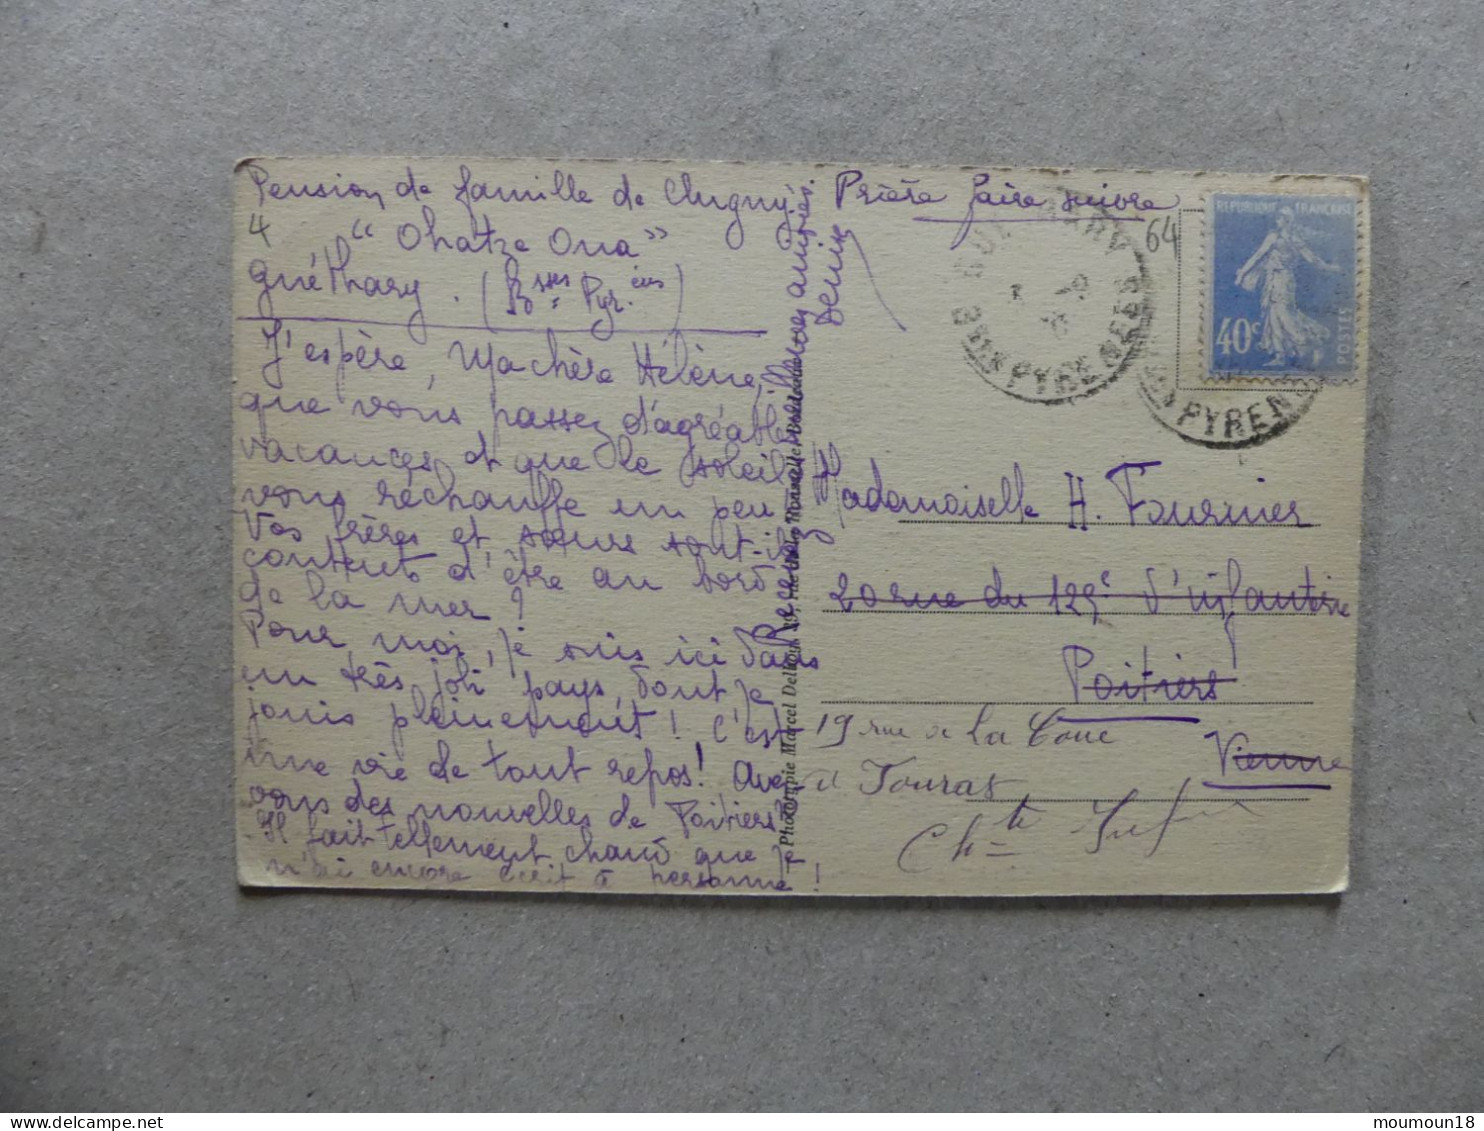 Pension de famille de Clugny.
4 "Ohatze Ona"
guéthary. (Bsses Pyr.ées)
J'espère, Ma chère Hélène,
que vous passez d'agréables
vacances et que le soleil
vous réchauffe un peu
Vos frères et sœurs sont-ils
contents d'être au bord
de la mer ?
Pour moi, je suis ici dans
un très joli pays, dont je
jouis pleinement ! C'est
une vie de tout repos ! Avez
vous des nouvelles de Poitiers
Il fait tellement chaud que je
n'ai encore écrit à personne !
Recevez mes amitiés.
Denise
Phototypie Marcel Delboy
Prière faire suivre
64
GUETHARY
BSES PYRENEES
SES PYRENEES
REPUBLIQUE FRANÇAISE
40c
POSTES
Mademoiselle H. Fournier
20 rue du 125e d'infanterie
Poitiers
Vienne
19 rue de la Coue
à Fouras
Chte Infre